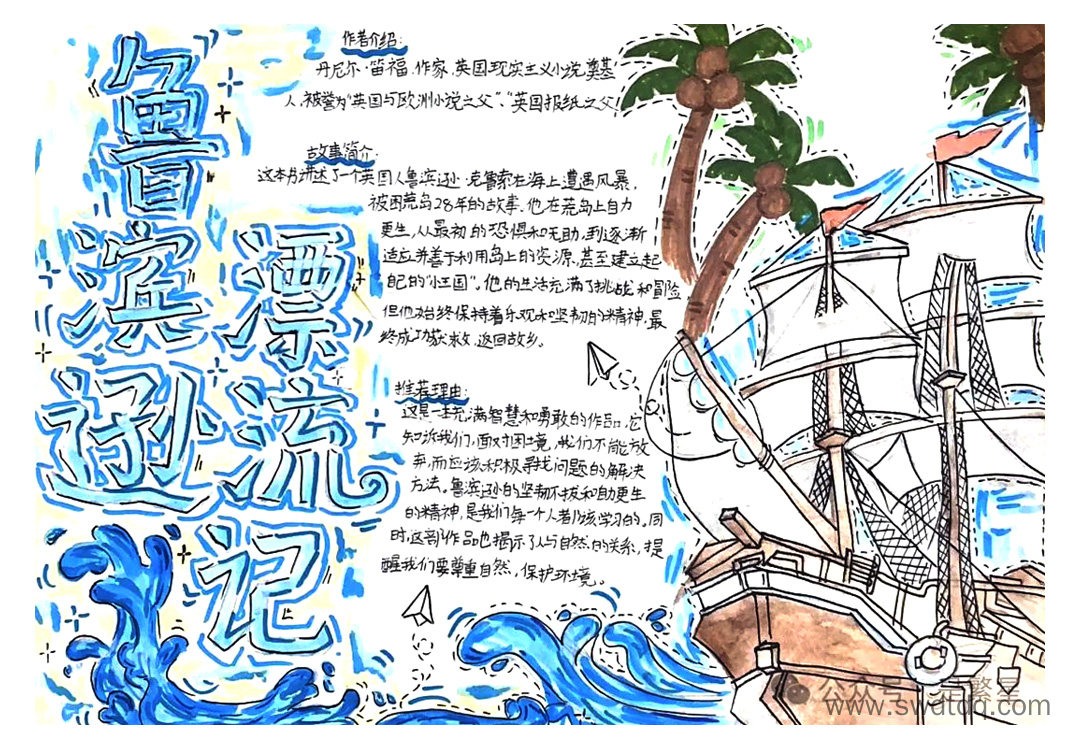 鲁滨逊
漂流记
作者介绍:
丹尼尔·笛福,作家,英国现实主义小说奠基
人,被誉为“英国与欧洲小说之父”、“英国报纸之父!
故事简介:
这本书讲述了一个英国人鲁滨逊·克鲁索在海上遭遇风暴,
被困荒岛28年的故事。他在荒岛上自力
更生,从最初的恐惧和无助,到逐渐
适应并善于利用岛上的资源,甚至建立起
自己的“小王国”。他的生活充满了挑战和冒险
但他始终保持着乐观和坚韧的精神,最
终成功获救,返回故乡。
推荐理由:
这是一本充满智慧和勇敢的作品,它
告诉我们,面对困境,我们不能放
弃,而应该积极寻找问题的解决
方法。鲁滨逊的坚韧不拔和自力更生
的精神,是我们每一个人都该学习的。同
时,这部作品也揭示了人与自然的关系,提
醒我们要尊重自然,保护环境。
公众号 繁星
www.swdtdq.com